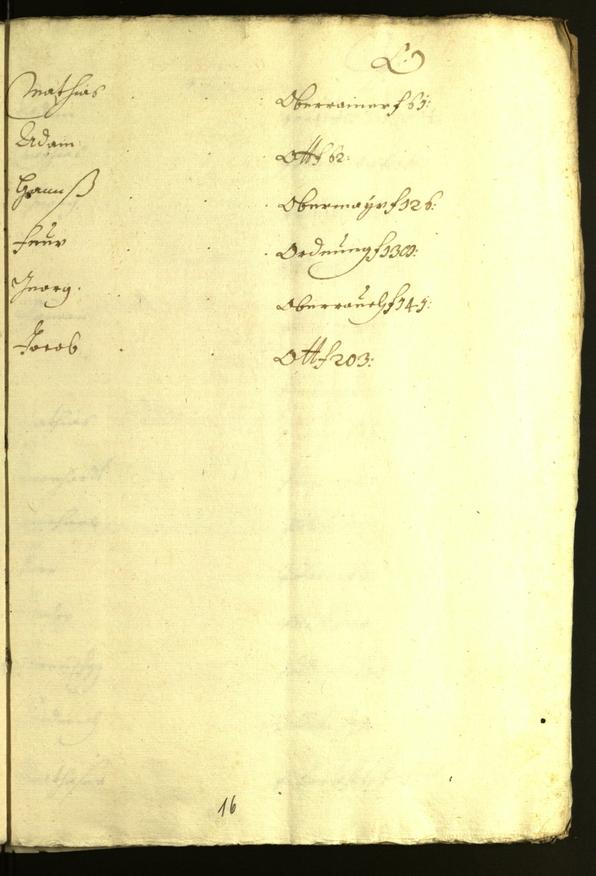 O
Mathias Oberrainer f 61:
Adam Ott f 62:
Hannß Obermayr f 126:
Feur Ordnung f 130:
Georg Oberrauch f 145:
Jacob Ott f 203:
16